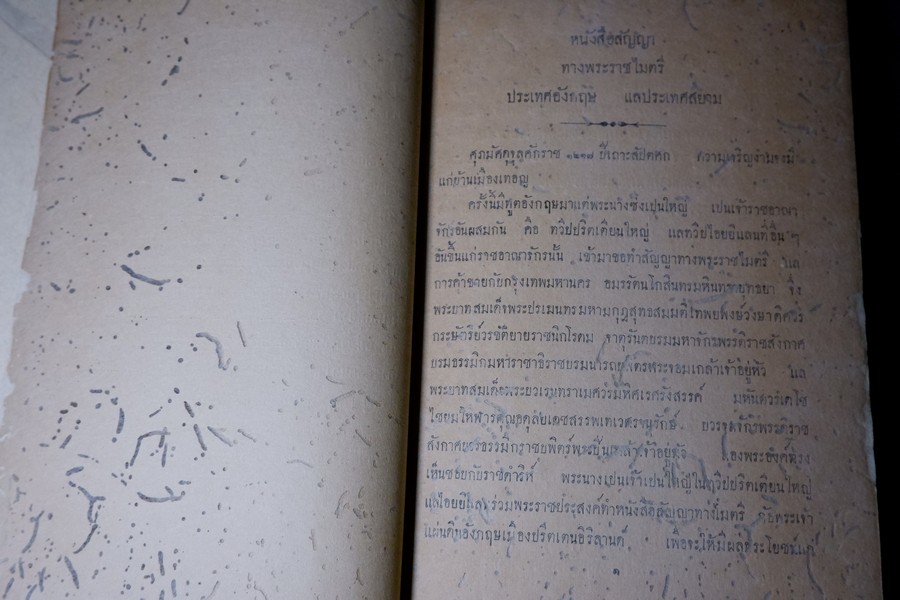 หนังสือสัญญา
ทางพระราชไมตรี
ประเทศอังกฤษ แลประเทศสยาม
ศุภมัศดุจุลศักราช ๑๒๑๗ ปีเถาะสัปตศก ความเจริญงามจงมี
แก่บ้านเมืองเทอญ
ครั้งนี้มีทูตอังกฤษมาแต่พระนางซึ่งเปนใหญ่ เปนเจ้าราชอาณา
จักรอันผสมกัน คือ ทวีปบริตเตียนใหญ่ แลทวีปไอยยิแลนด์อื่น ๆ
อันขึ้นแก่ราชอาณาจักรนั้น เข้ามาขอทำสัญญาทางพระราชไมตรี แล
การค้าขายกับกรุงเทพมหานคร อมรรัตนโกสินทรมหินทรายุทธยา จึง
พระบาทสมเด็จพระปรเมนทรมหามกุฎสุทธสมมติเทพยพงษ์วงษาดิศวร
กระษัตริย์วรขัติยายราชนิกโรดม จาตุรันตบรมมหาจักรพรรดิราชสังกาศ
บรมธรรมิกมหาราชาธิราชบรมนารถบพิตรพระจอมเกล้าเจ้าอยู่หัว แล
พระบาทสมเด็จพระบวเรนทราเมศวรมหิศเรศรังสรรค์ มหันตวรเดโช
ไชยมโหฬารคุณอดุลยเดชสรรพเทเวศรานุรักษ์ บวรจุลจักรพรรดิราช
สังกาศบวรธรรมิกราชบพิตร์พระปิ่นเกล้าเจ้าอยู่หัว สองพระองค์ทรง
เห็นชอบกับราชดำริห์ พระนางเปนเจ้าเปนใหญ่ในทวีปบริตเตียนใหญ่
แลไอยยิแลนด์ร่วมพระราชประสงค์ทำหนังสือสัญญาทางไมตรี
แผ่นดินอังกฤษเมืองบริตเตน เพื่อจะให้มีผลประโยชน์แก่